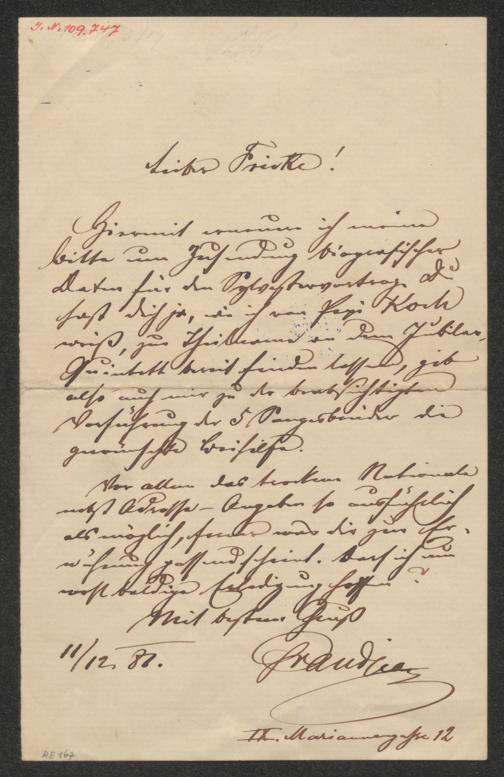 J. N. 109.747
Lieber Fricke!
Hiermit erneuere ich meine
Bitte um Zusendung biografischer
Daten für den Sylvestervortrag. Du
hast dich ja, wie ich von Pepi Koch
weiß, zur Theilname an dem Jubilar-
Quintett bereit finden lassen, gib
also auch mir zu der beabsichtigten
Vorführung der 5 Sangesbrüder die
gewünschte Beihilfe.
Vor allem das trockene Nationale
nebst Adresse-Angaben so ausführlich
als möglich, ferner was dir zur Er-
wähnung passend scheint. Darf ich um
baldige Erledigung
Mit bestem Gruß
11/12. 81.
IX. Mariannengasse 12
RE 167